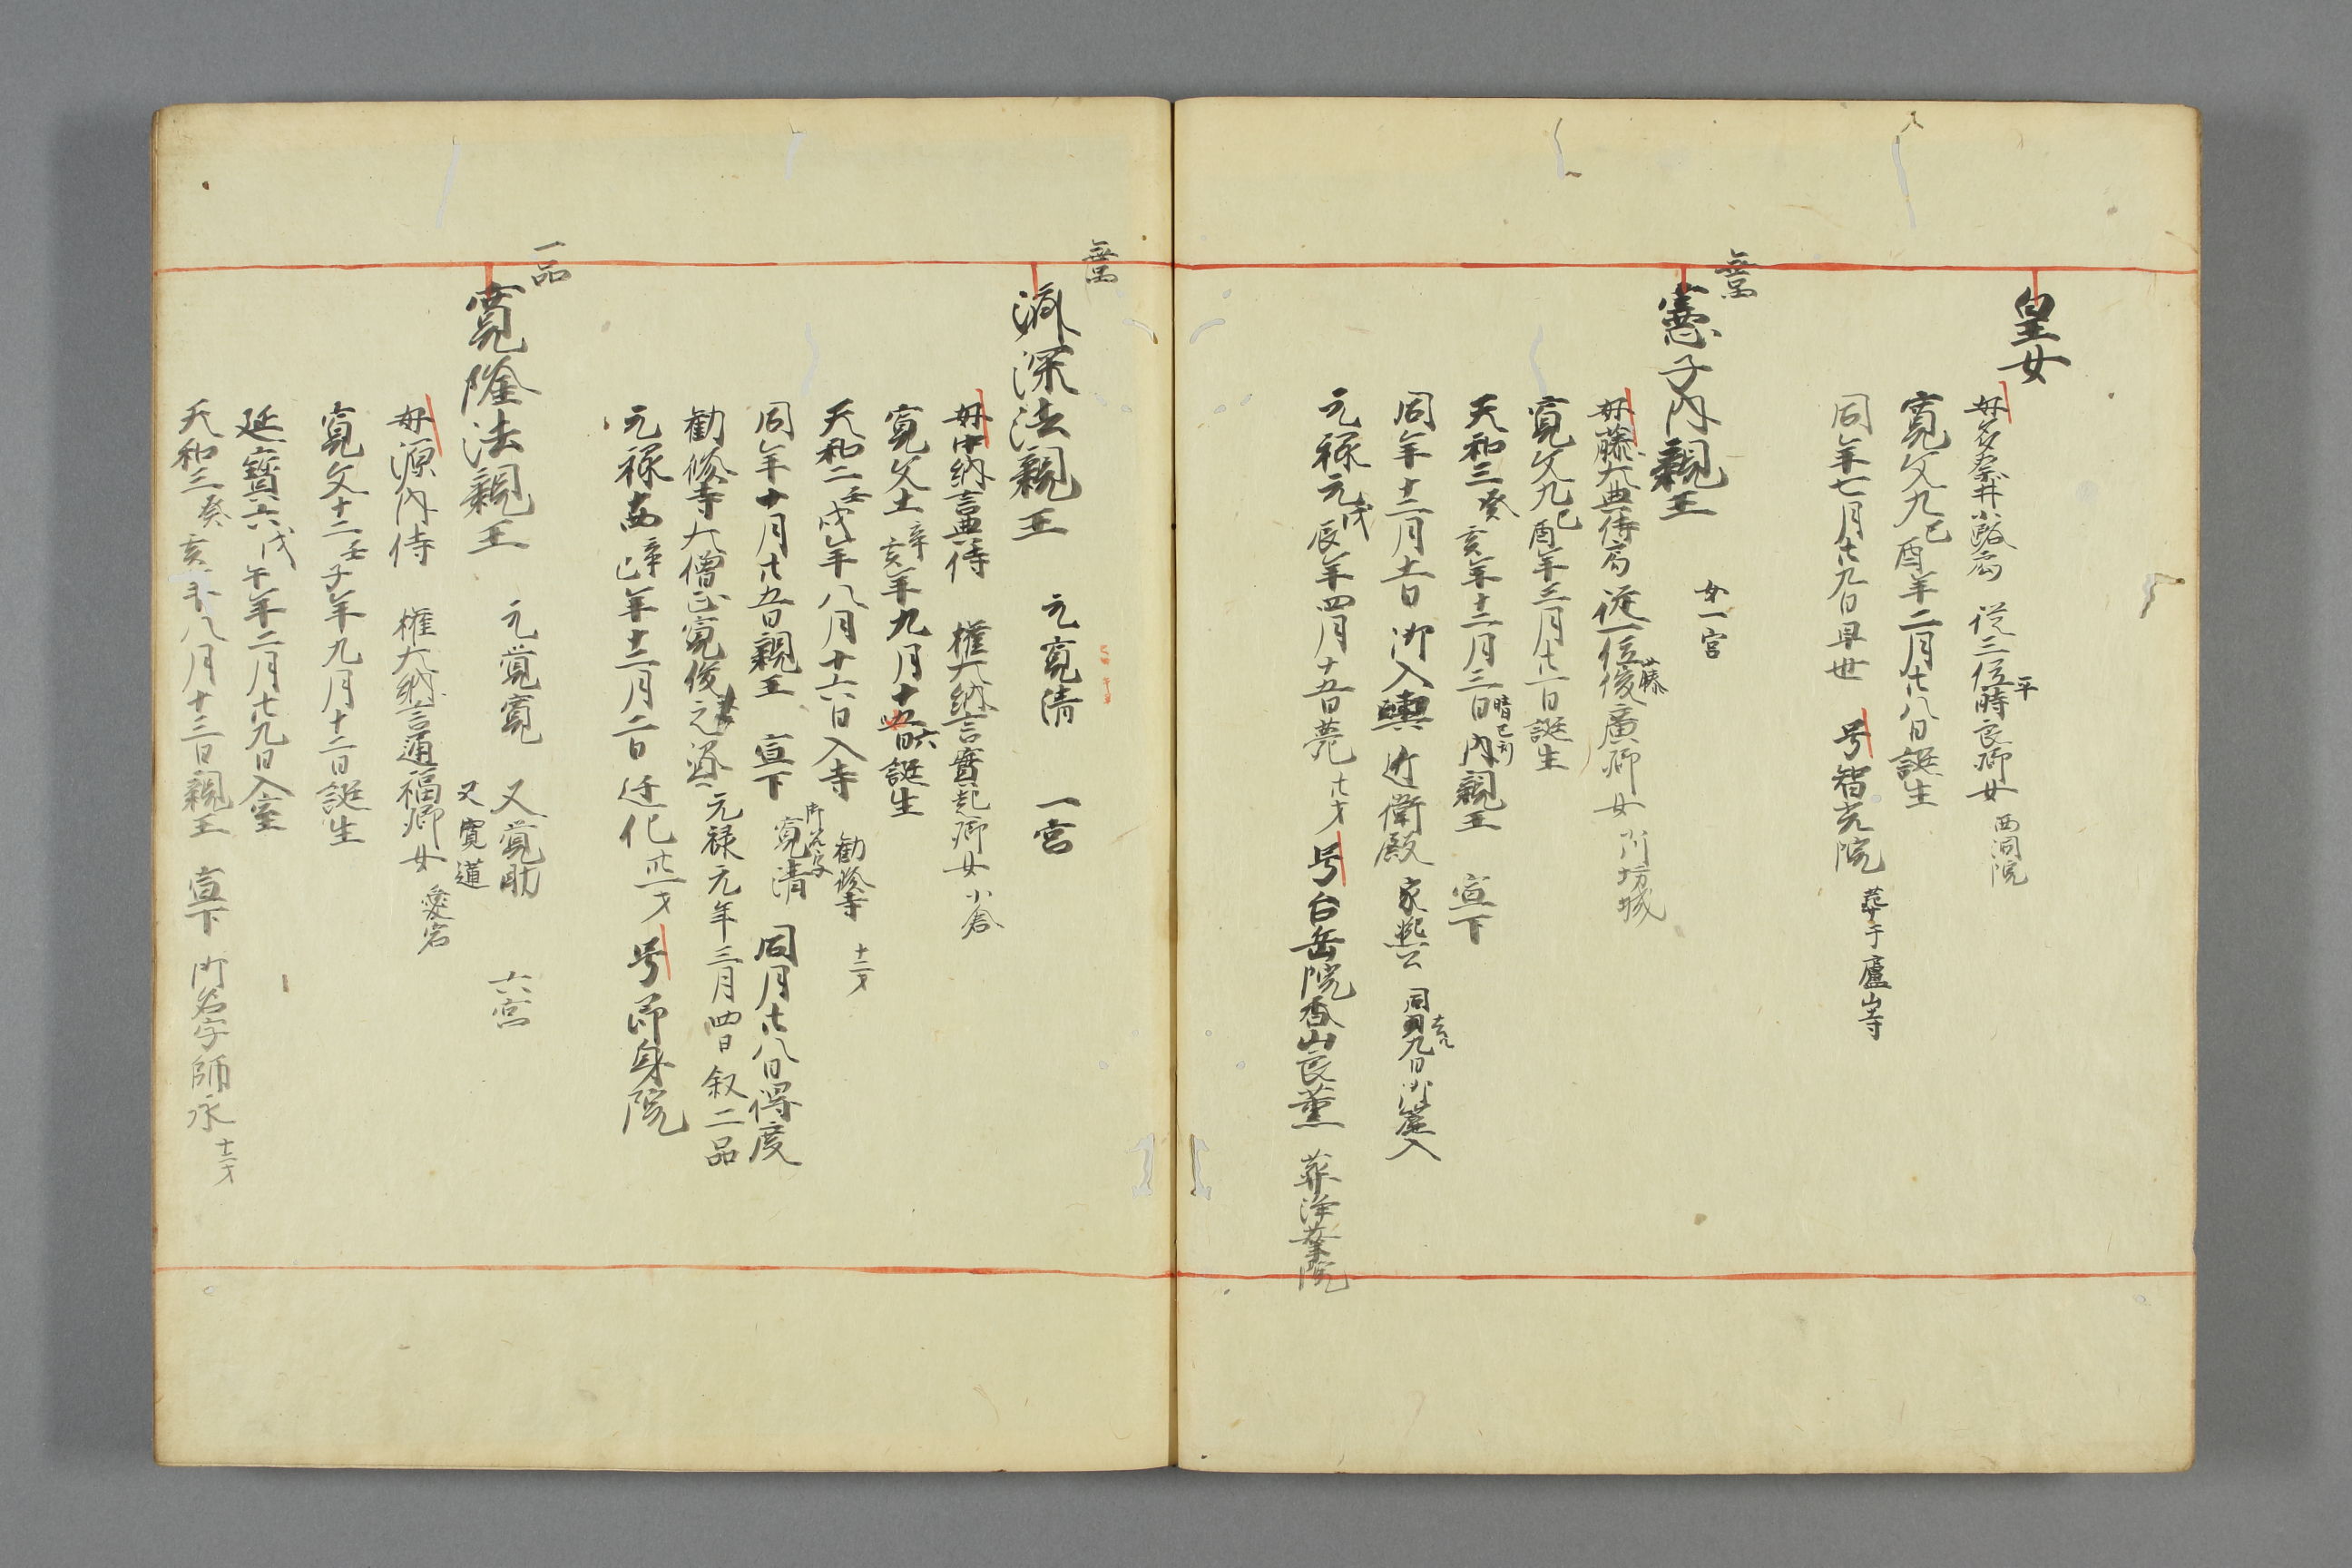 皇女
母 従三位平時良卿女 西洞院
寛文九己酉年二月廿八日誕生
同年七月廿九日早世 号智光院 葬于廬山寺
無品
憲子内親王 女一宮
母藤大典侍局 従一位藤俊廣卿女 小川坊城
寛文九己酉年三月廿一日誕生
天和三癸亥年十二月三日晴巳刻内親王 宣下
同年十二月十一日御入輿近衛殿 家熈公 同 九日御簾入
元禄元戊辰年四月十五日薨廿才 号台岳院香山良薫 葬浄華院
無品
済深法親王 元寛清 一宮
母中納言典侍 権大納言實起卿女 小倉
寛文十一辛亥年九月十六日誕生
天和二壬戌年八月十六日入寺 勧修寺 十二才
同年十月廿五日親王 宣下 御名字寛清 同月廿八日得度
勧修寺大僧正寛俊之資 元禄元年三月四日叙二品
元禄十四辛巳年十二月二日迁化 卅一才 号即身院
一品
寛隆法親王 元覚寛 又覚助 六宮
又寛蓮
母源内侍 権大納言通福卿女 愛宕
寛文十二壬子年九月十二日誕生
延寶六戊午年二月廿九日入室
天和三癸亥年八月十三日親王 宣下 御名字師永 十二才